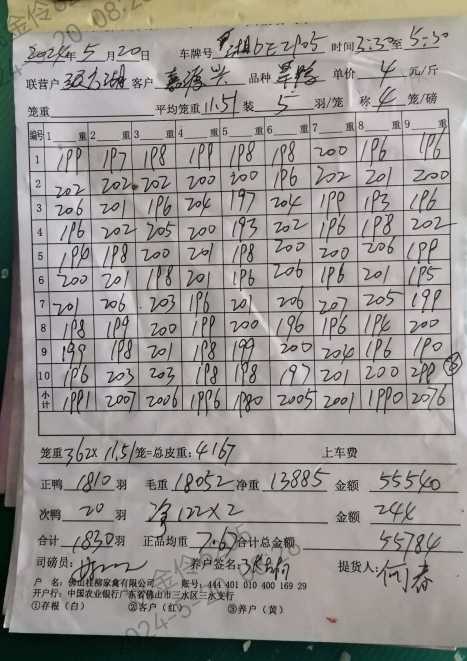 2024年5月20日 车牌号 时间3:30至5:30
联营户 客户 品种 单价 4 元/斤
笼重 平均笼重11.51装 5 羽/笼 称 4 笼/磅
编号 1 重 2 重 3 重 4 重 5 重 6 重 7 重 8 重 9 重
1 199 197 198 199 198 198 200 196 196
2 202 202 202 200 200 196 202 201 200
3 206 201 196 204 197 204 199 193 196
4 196 202 205 200 193 202 196 198 202
5 194 198 200 201 198 200 200 206 199
6 200 201 198 201 196 206 196 201 195
7 201 206 203 196 201 206 207 205 199
8 198 199 200 199 200 196 196 194 200
9 199 198 201 198 199 200 204 196 190
10 196 203 203 198 198 197 201 200 299
小计 1991 2007 2006 1996 1980 2005 2001 1990 2076
笼重362×11.51笼=总皮重:4167 上车费
正鸭 1810 羽 毛重 18052 净重 13885 金额 55540
次鸭 20 羽 净122×2 金额 244
合计 1830 羽 正品均重 7.67 合计总金额 55784
司磅员: 养户签名: 提货人:何春
户 名:佛山桂柳家禽有限公司 账号:444 401 010 400 169 29
开户行:中国农业银行广东省佛山市三水区三水支行
①存根(白) ②客户(红) ③养户(黄)